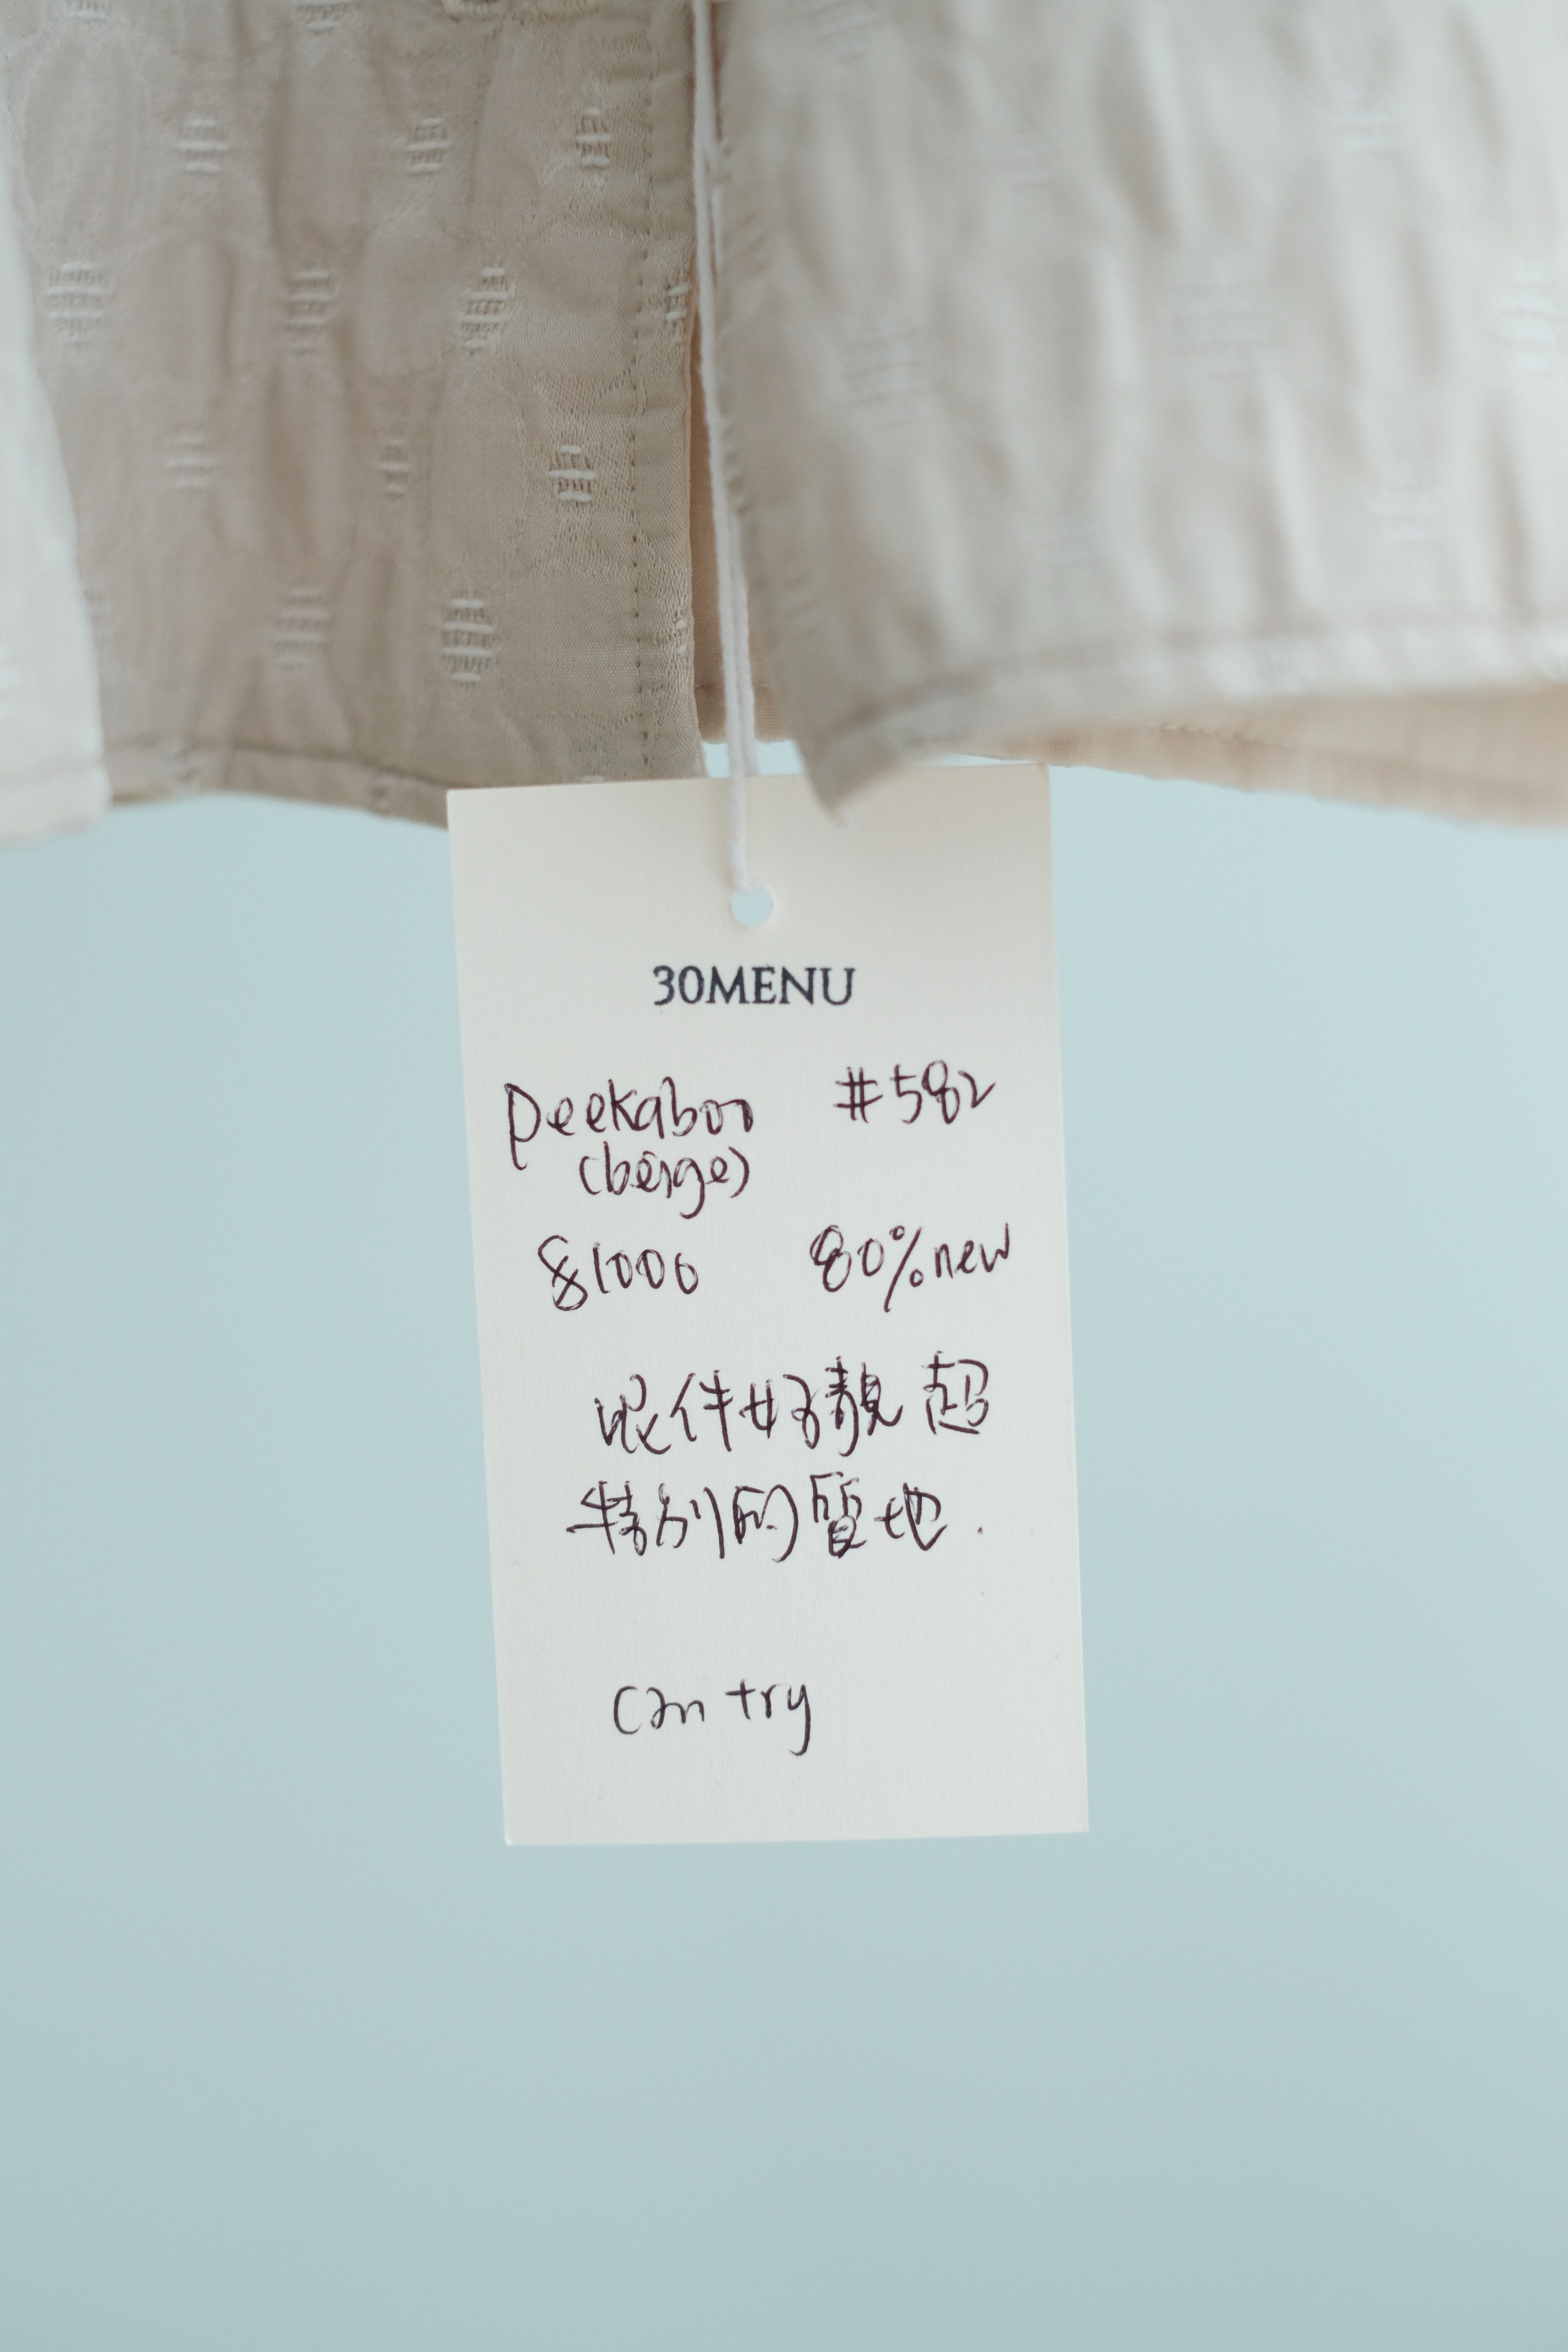 30MENU
Peekaboo #582
(beige)
$1000 80% new
呢件好靚 超
特別的質地.
can try